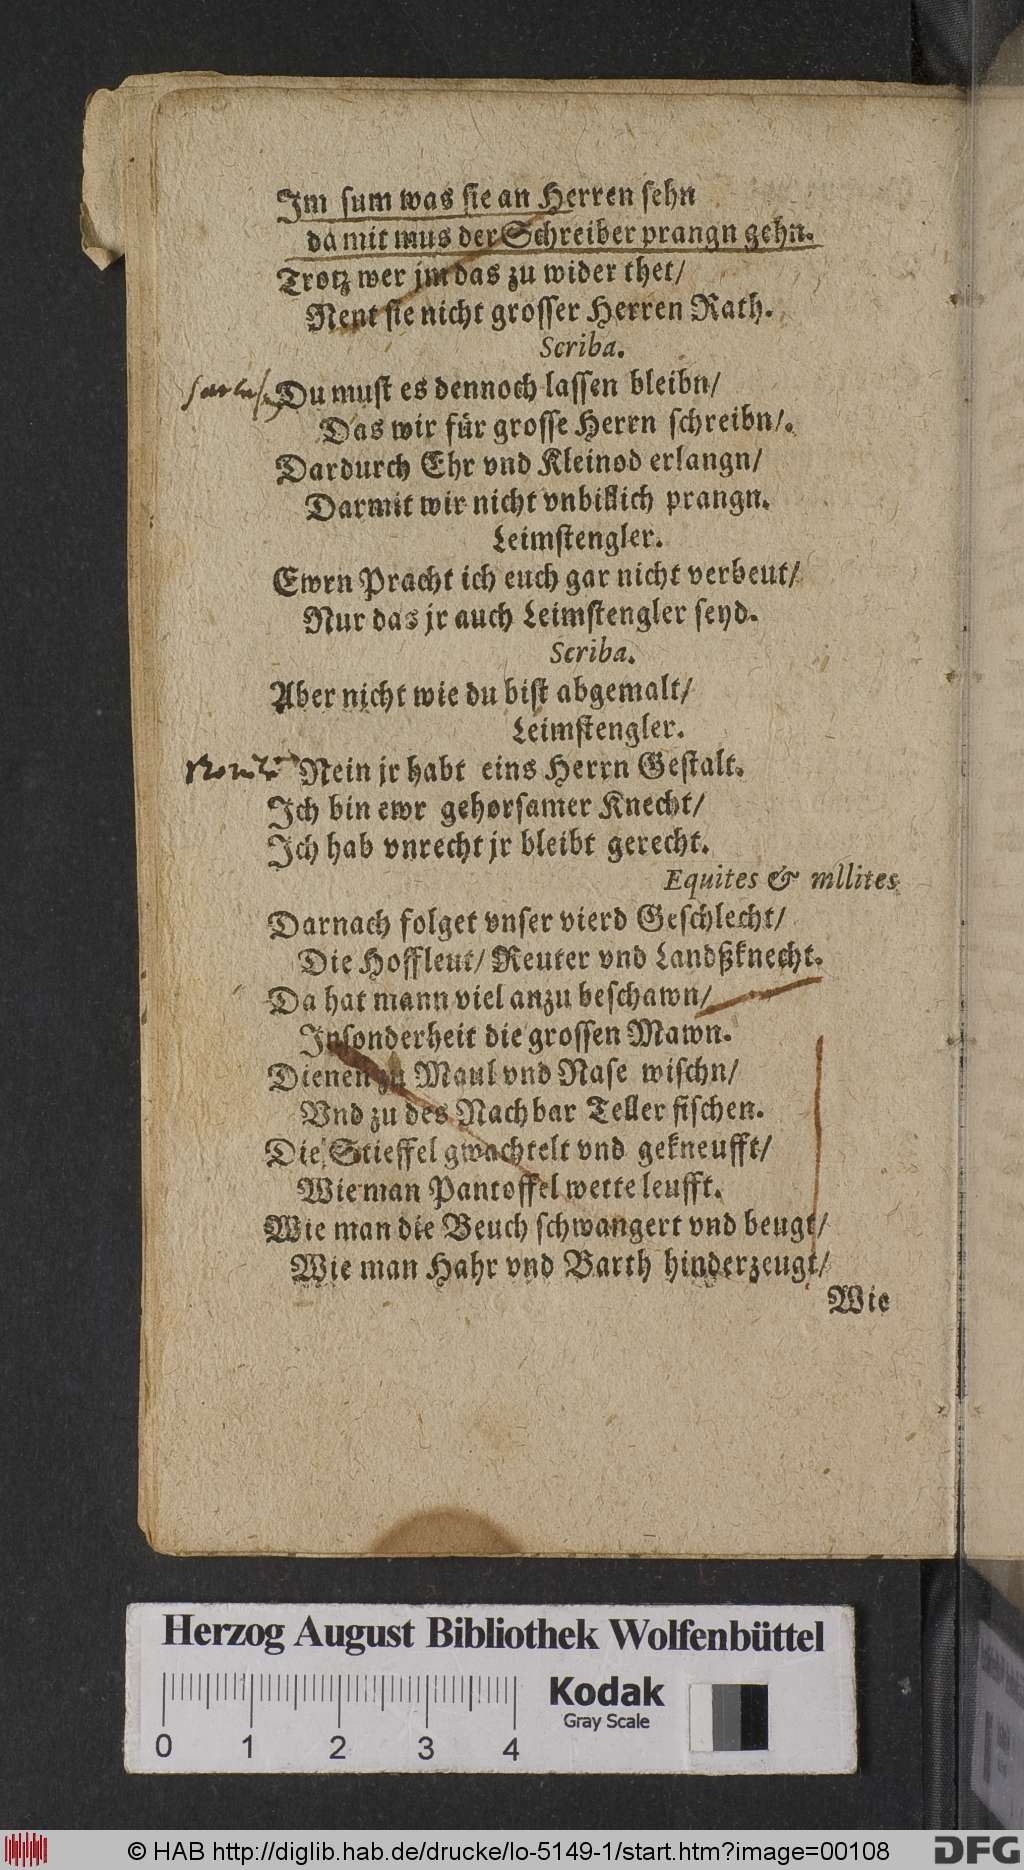 Im sum was sie an Herren sehn
damit mus der Schreiber prangn gehn.
Trotz wer jm das zu wider thet/
Nent sie nicht grosser Herren Rath.
Scriba.
Du must es dennoch lassen bleibn/
Das wir für grosse Herrn schreibn/.
Dardurch Ehr vnd Kleinod erlangn/
Darmit wir nicht vnbillich prangn.
Leimstengler.
Ewrn Pracht ich euch gar nicht verbeut/
Nur das jr auch Leimstengler seyd.
Scriba.
Aber nicht wie du bist abgemalt/
Leimstengler.
Nein jr habt eins Herrn Gestalt.
Ich bin ewr gehorsamer Knecht/
Ich hab vnrecht jr bleibt gerecht.
Equites & mllites
Darnach folget vnser vierd Geschlecht/
Die Hoffleut/ Reuter vnd Landßknecht.
Da hat mann viel anzu beschawn/
Insonderheit die grossen Mawn.
Dienen zu Maul vnd Nase wischn/
Vnd zu des Nachbar Teller fischen.
Die Stieffel gwachtelt vnd gekneufft/
Wie man Pantoffel wette leufft.
Wie man die Beuch schwangert vnd beugt/
Wie man Hahr vnd Barth hinderzeugt/
Wie
Herzog August Bibliothek Wolfenbüttel
Kodak
Gray Scale
0 1 2 3 4
© HAB http://diglib.hab.de/drucke/lo-5149-1/start.htm?image=00108
DFG